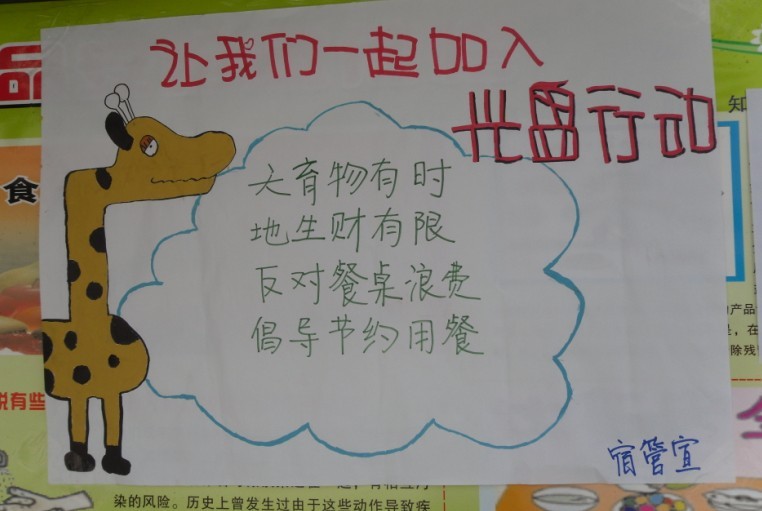 让我们一起加入
光盘行动
天育物有时
地生财有限
反对餐桌浪费
倡导节约用餐
宿管宣
品
食
知
产品
是，在
除残
说有些
染的风险。历史上曾发生过由于这些动作导致疾